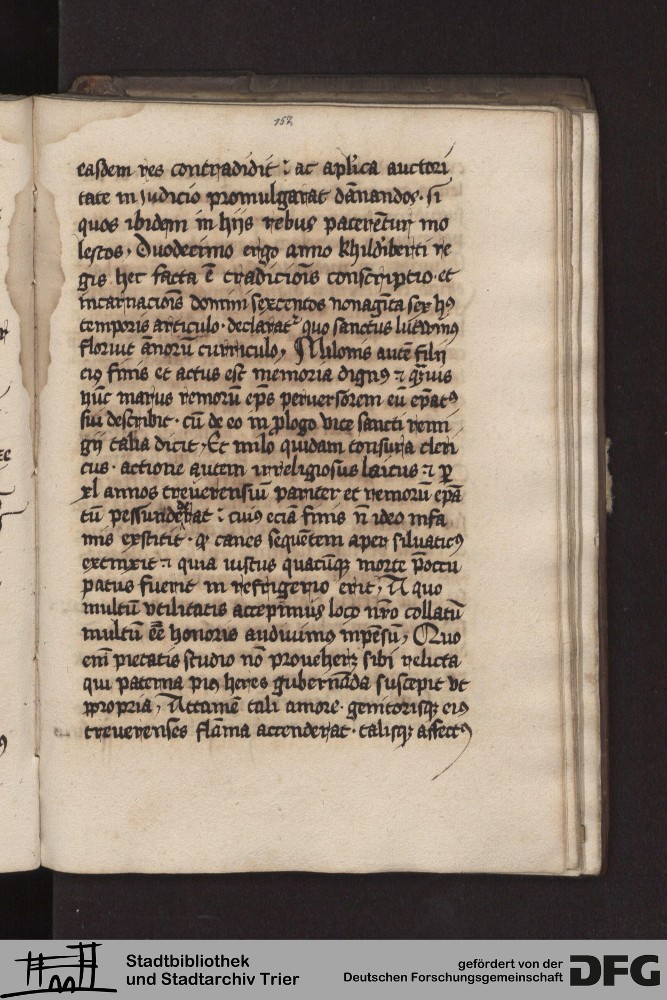 152
easdem res contradidit : ac aplica auctori
tate in judicio promulgarat dānandos · si
quos ibidem in hijs rebus paterētur mo
lestos , Duodecimo ergo anno khildiberti re
gis hec facta ē tradicionis conscriptio · et
incarnacionis domini sexcentos nonagīta sex hꝰ
temporis articulo · declarat quo sanctus
floruit ānorū curriculo , Milonis autē filij
eiꝰ finis et actus est memoria dignꝰ ⁊ quis
nūc maius remorū ep̄s peruersorem eū ep̄atꝰ
sui describit · cū de eo in plogo vice sancti remi
gij talia dicit , Et milo quidam tonsura cleri
cus · actione autem irreligiosus laicus ⁊ ꝑ
xl annos treuerensiū pariter et remorū epā
tū pessunderat : cuiꝰ eciā finis n̄ ideo infa
mis exstitit · ꝙ canes sequētem aper siluaticꝰ
extinxit ⁊ quia iustus quacūqꝫ morte p̄occu
patus fuerit in refrigerio erit , A quo
multū vtilitatis accepimus loco nr̄o collatū
multū ēē honoris audiuimꝰ inpēsū , Quo
em̄ pietatis studio nō proueherꝫ sibi relicta
qui paterna piꝰ heres gubernāda suscepit vt
propria , Attamē tali amore · genitorisqꝫ eiꝰ
treuerenses flāma accenderat · talisqꝫ affectꝰ
Stadtbibliothek
und Stadtarchiv Trier
gefördert von der
Deutschen Forschungsgemeinschaft
DFG